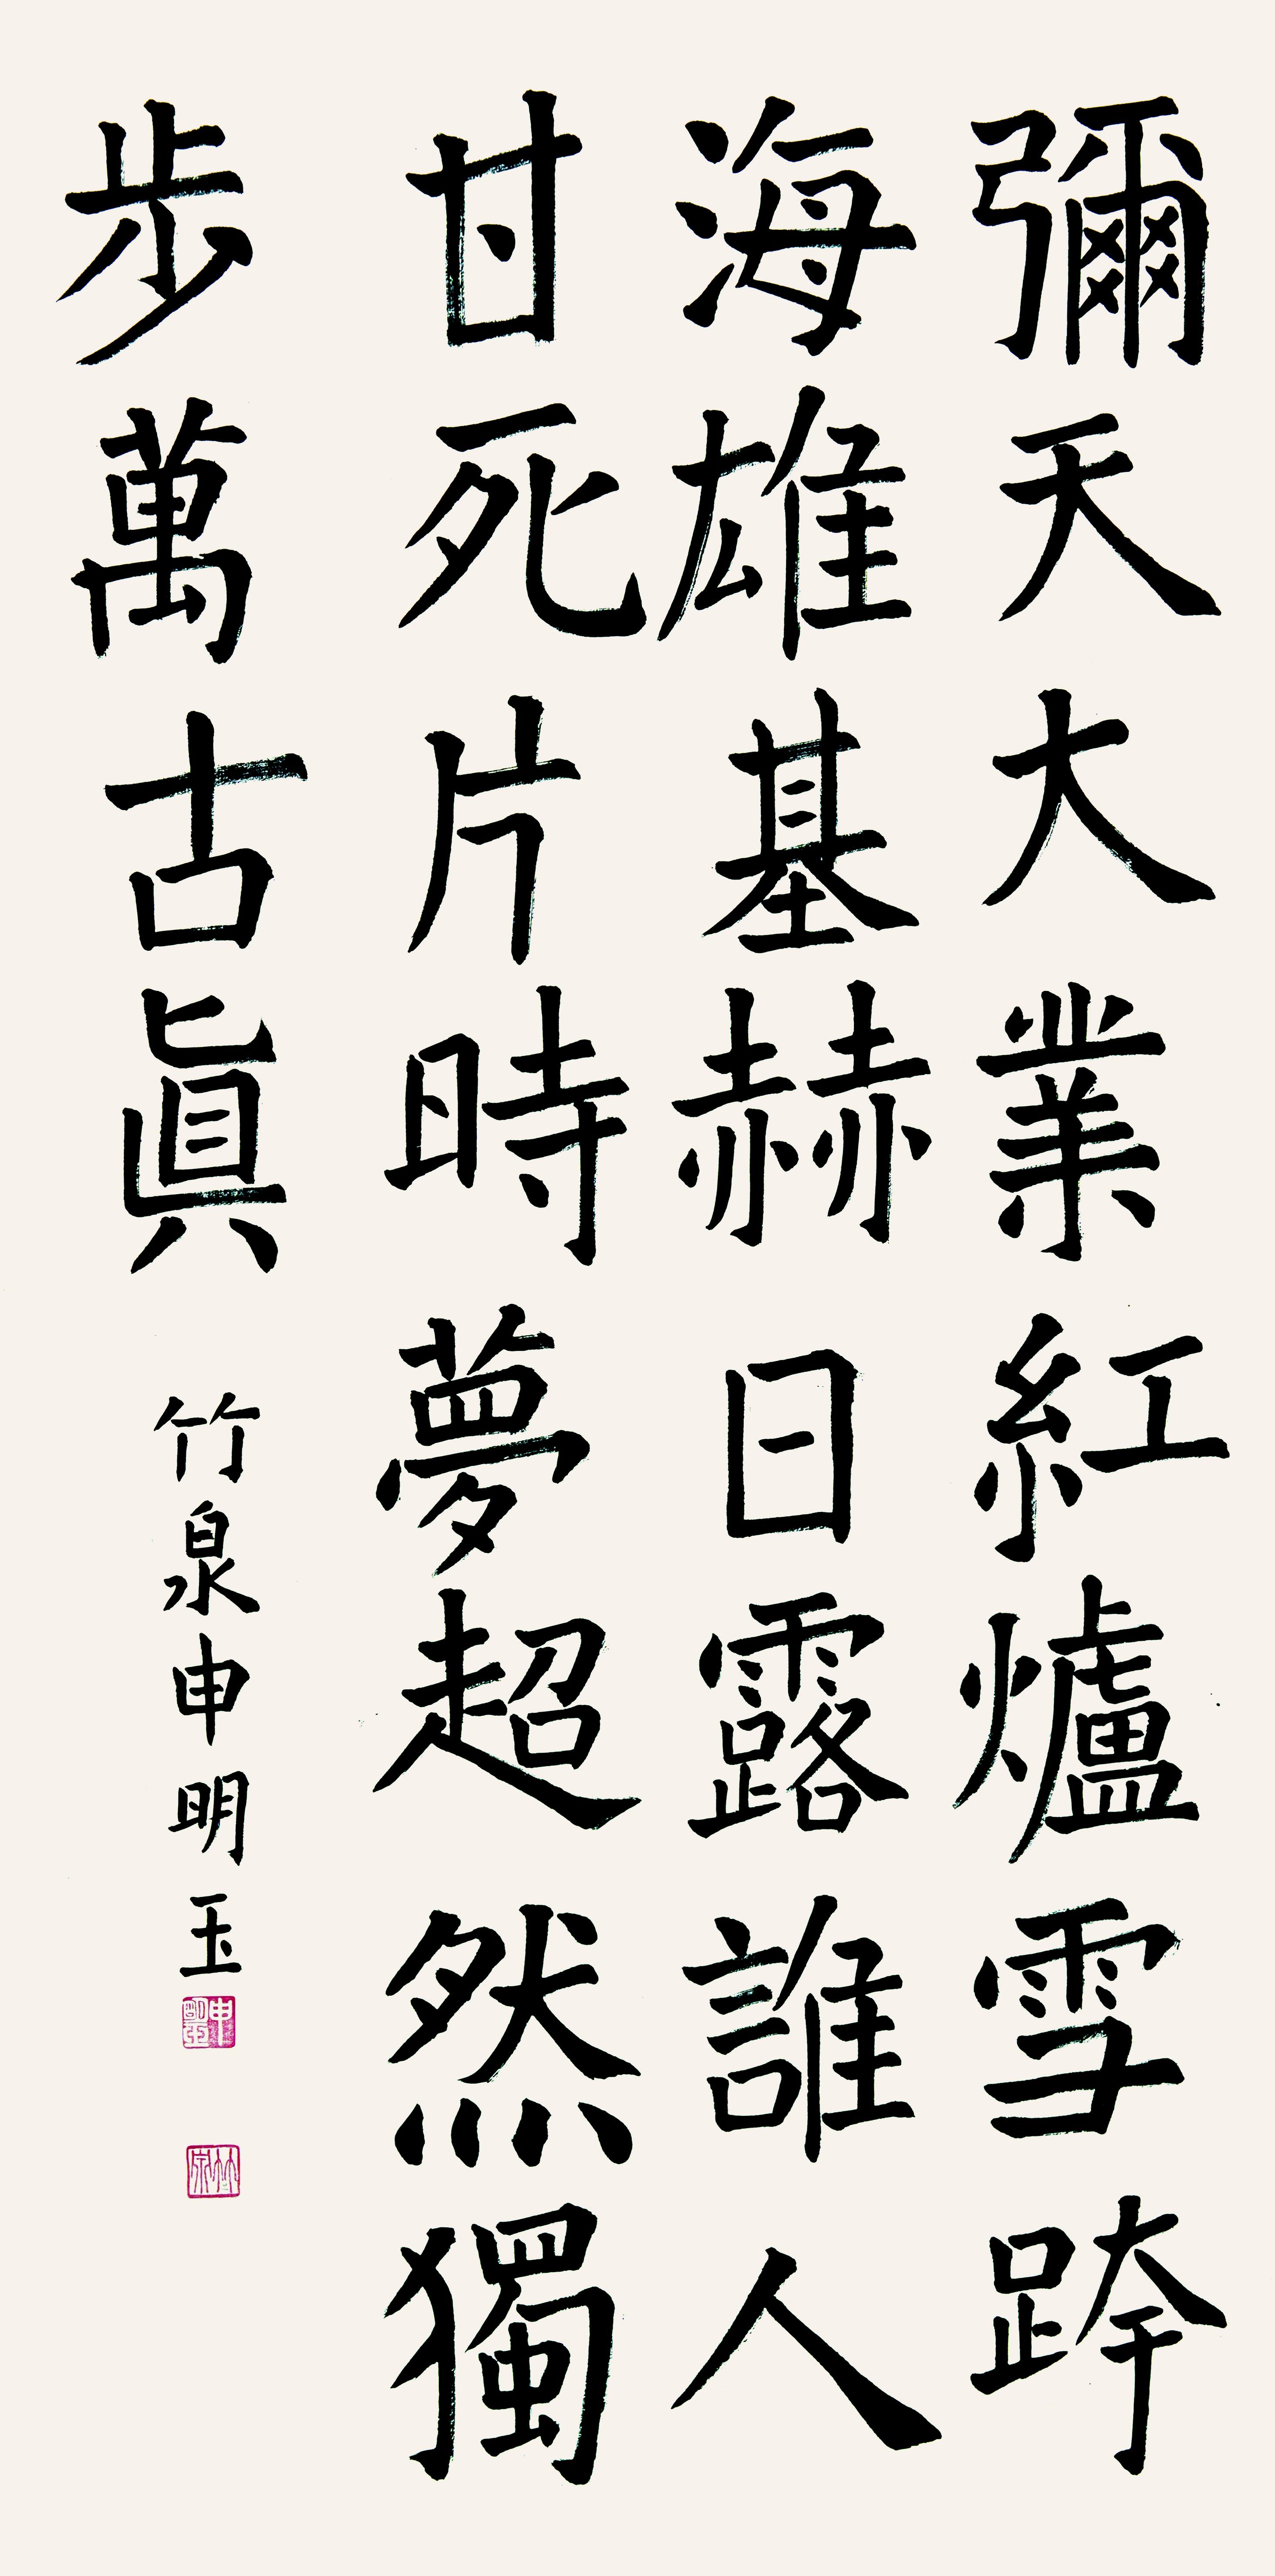 彌天大業紅爐雪跨
海雄基赫日露誰人
甘死片時夢超然獨
步萬古眞
竹泉申明玉
申明玉
竹泉